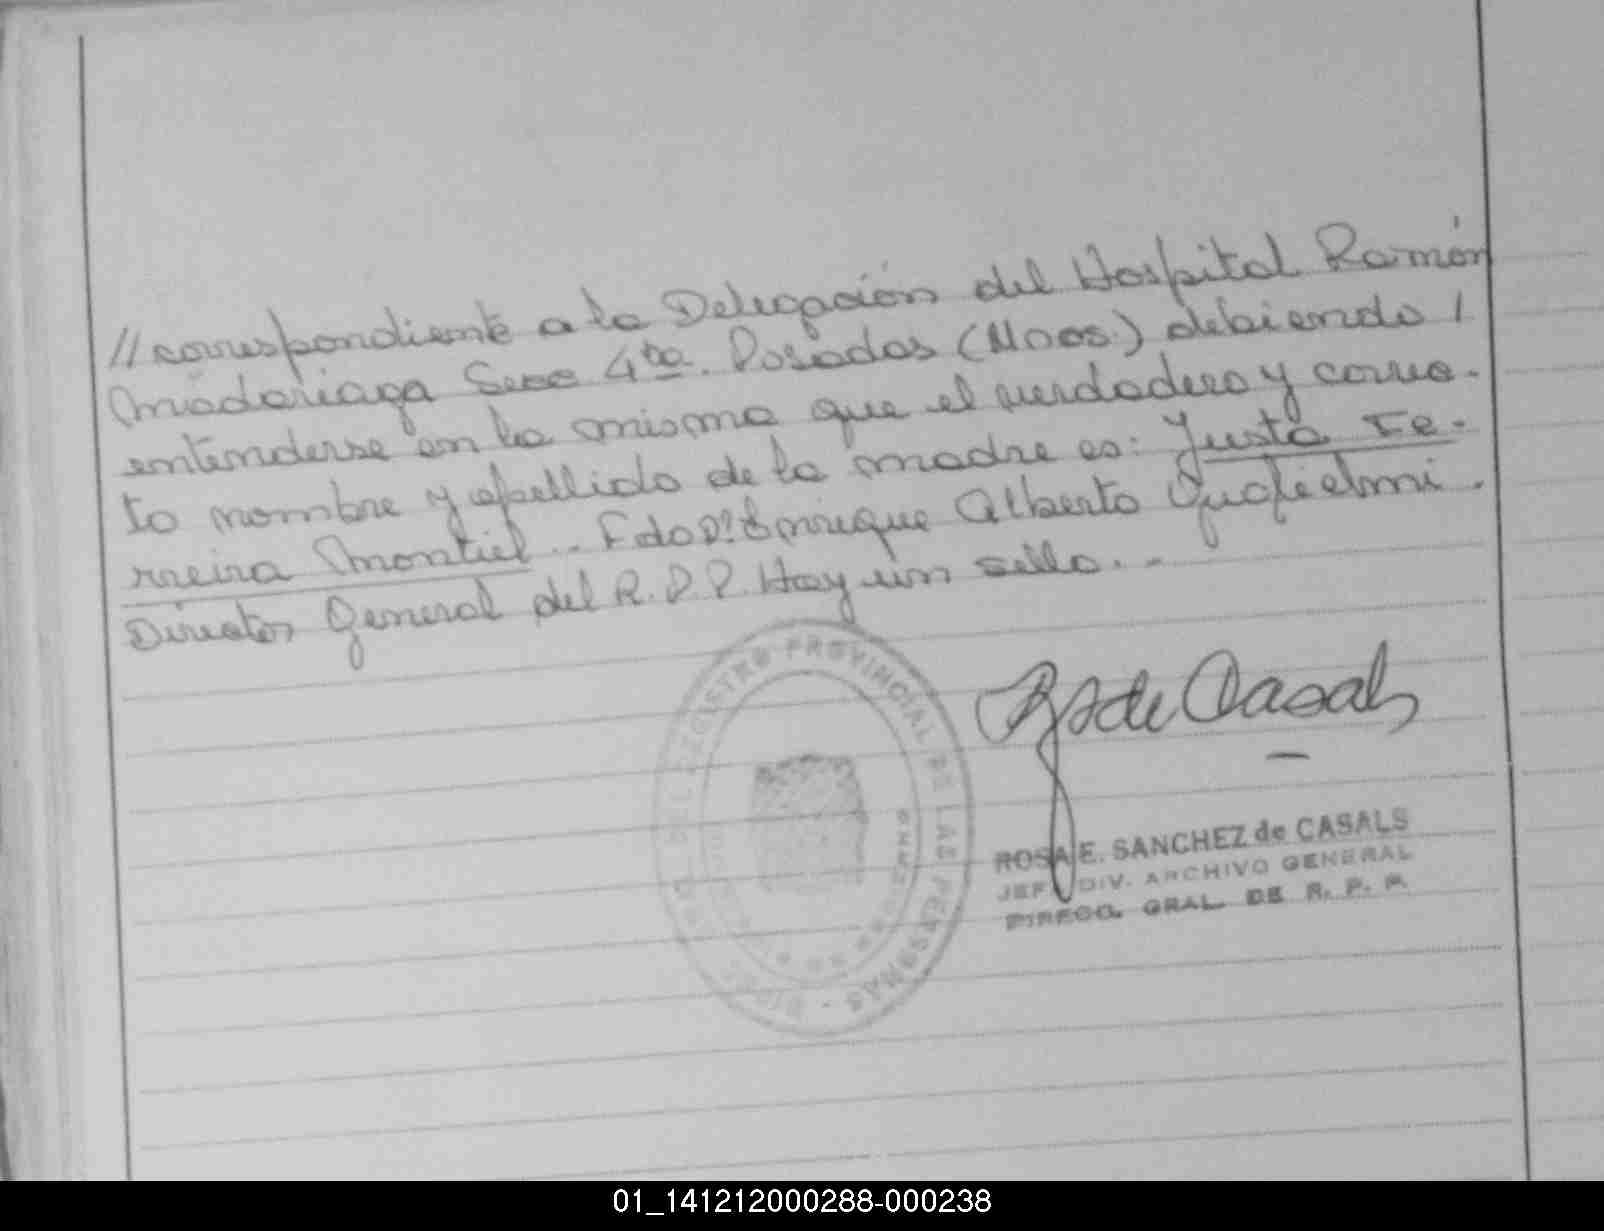 // correspondiente a la Delegación del Hospital Ramón
Madariaga Secc 4ta. Posadas (Mnes.) debiendo /
entenderse en la misma que el verdadero y corre-
to nombre y apellido de la madre es: Justa Fe-
rreira Montiel.. Fdo D: Enrique Alberto Guglielmi.
Director General del R.P.P. Hay un sello..-
REGISTRO PROVINCIAL DE LAS PERSONAS
RS de Casals
ROSA E. SANCHEZ de CASALS
JEFE DIV. ARCHIVO GENERAL
DIRECC. GRAL. DE R. P. P.
01_141212000288-000238